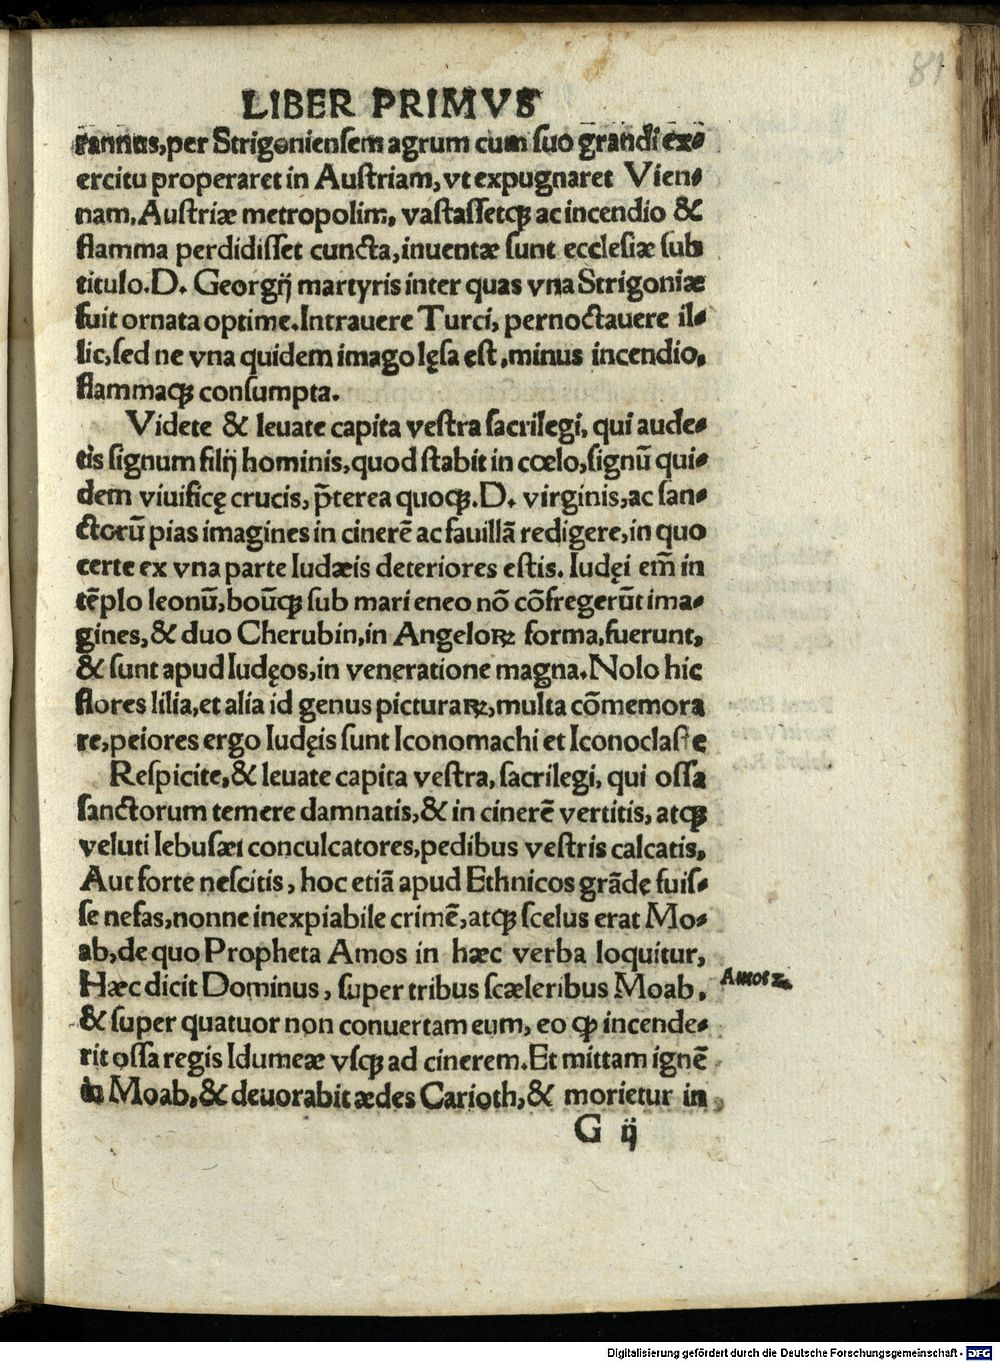 81
LIBER PRIMVS
rannus,per Strigoniensem agrum cum suo grandi ex⸗
ercitu properaret in Austriam,vt expugnaret Vien⸗
nam,Austriæ metropolim, vastassetq́ꝫ ac incendio &
flamma perdidisset cuncta,inuentæ sunt ecclesiæ sub
titulo.D. Georgij martyris inter quas vna Strigoniæ
fuit ornata optime.Intrauere Turci, pernoctauere il⸗
lic,sed ne vna quidem imago lęsa est,minus incendio,
flammaqꝫ consumpta.
Videte & leuate capita vestra sacrilegi, qui aude⸗
tis signum filij hominis,quod stabit in cœlo,signū qui⸗
dem viuificę crucis, p̄terea quoqꝫ.D. virginis,ac san⸗
ctorū pias imagines in cinerē ac fauillā redigere,in quo
certe ex vna parte Iudæis deteriores estis. Iudęi em̄ in
tēplo leonū,boūqꝫ sub mari eneo nō cōfregerūt ima⸗
gines,& duo Cherubin,in Angeloꝝ forma,fuerunt,
& sunt apud Iudęos,in veneratione magna.Nolo hic
flores lilia,et alia id genus picturaꝝ,multa cōmemora
re,peiores ergo Iudęis sunt Iconomachi et Iconoclaste
Respicite,& leuate capita vestra, sacrilegi, qui ossa
sanctorum temere damnatis,& in cinerē vertitis, atqꝫ
veluti Iebusæi conculcatores,pedibus vestris calcatis,
Aut forte nescitis, hoc etiā apud Ethnicos grāde fuis⸗
se nefas,nonne inexpiabile crimē,atqꝫ scelus erat Mo⸗
ab,de quo Propheta Amos in hæc verba loquitur,
Hæc dicit Dominus, super tribus scæleribus Moab,
Amos 2.
& super quatuor non conuertam eum, eo ꝙ incende⸗
rit ossa regis Idumeæ vsqꝫ ad cinerem.Et mittam ignē
in Moab,& deuorabit ædes Carioth,& morietur in
G ij
Digitalisierung gefördert durch die Deutsche Forschungsgemeinschaft - DFG